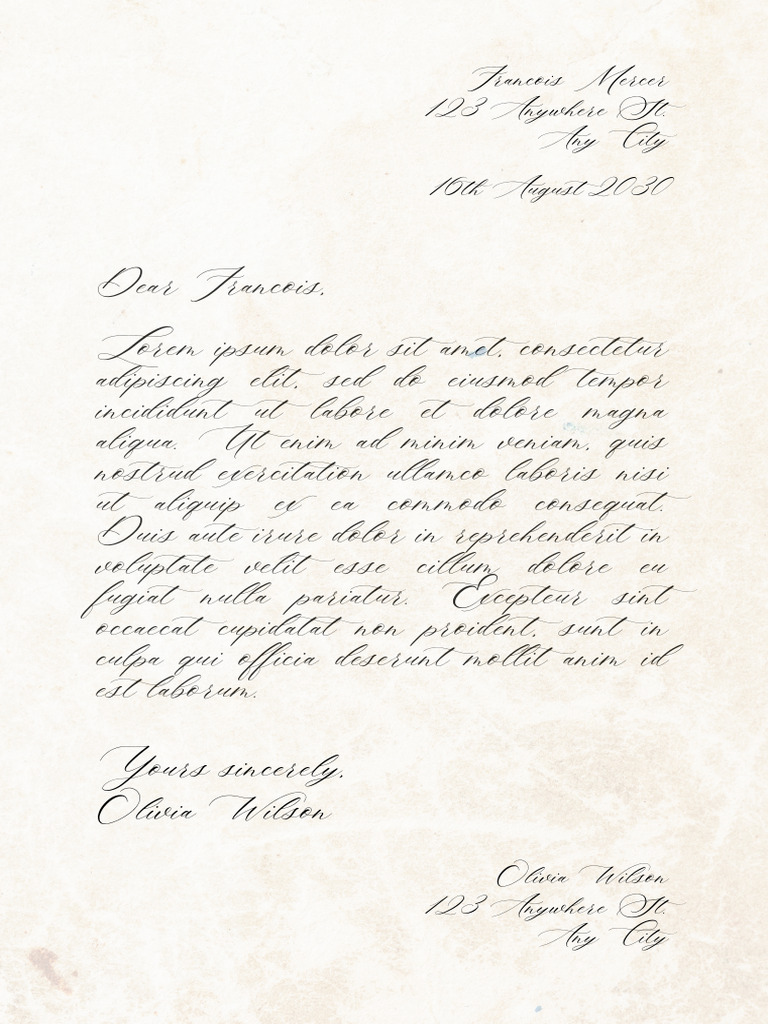 Francois Mercer
123 Anywhere St.
Any City
16th August 2030
Dear Francois,
Lorem ipsum dolor sit amet, consectetur
adipiscing elit, sed do eiusmod tempor
incididunt ut labore et dolore magna
aliqua. Ut enim ad minim veniam, quis
nostrud exercitation ullamco laboris nisi
ut aliquip ex ea commodo consequat.
Duis aute irure dolor in reprehenderit in
voluptate velit esse cillum dolore eu
fugiat nulla pariatur. Excepteur sint
occaecat cupidatat non proident, sunt in
culpa qui officia deserunt mollit anim id
est laborum.
Yours sincerely,
Olivia Wilson
Olivia Wilson
123 Anywhere St.
Any City